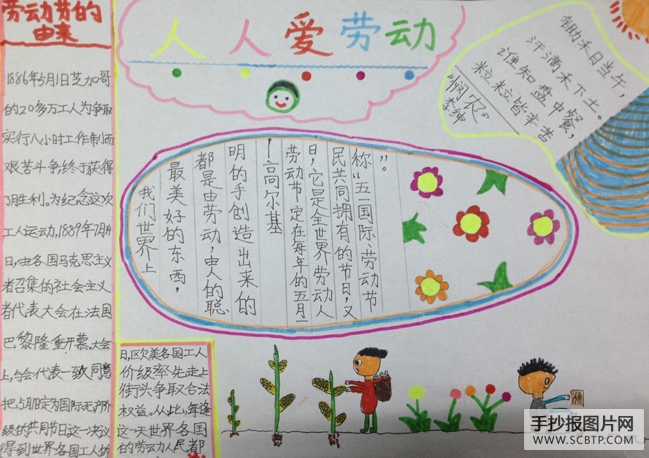 劳动劳的
由来
1886年5月1日芝加哥
的20多万工人为争取
实行八小时工作制而
艰苦斗争终于获得
了胜利。为纪念这次
工人运动,1889年7月14
日,由各国马克思主义
者召集的社会主义
者代表大会在法国
巴黎隆重开幕。大会
上,与会代表一致同意
把5月1日定为国际无产阶
级的共同节日这一决议
得到世界各国工人的
日,区欧美各国工人
价级率先走上
街头争取合法
权益。从此,年逐
这一天世界各国
的劳动人民都
人人爱劳动
锄禾日当午,
汗滴禾下土。
谁知盘中餐,
粒粒皆辛苦
"悯农"
李绅
我们世界上
最美好的东西,
都是由劳动,由人的聪
明的手创造出来的
!高尔基
劳动节定在每年的五月一
日,它是全世界劳动人
民共同拥有的节日,又
称“五一国际劳动节
”。
手抄报图片网
WWW.SCBTP.COM